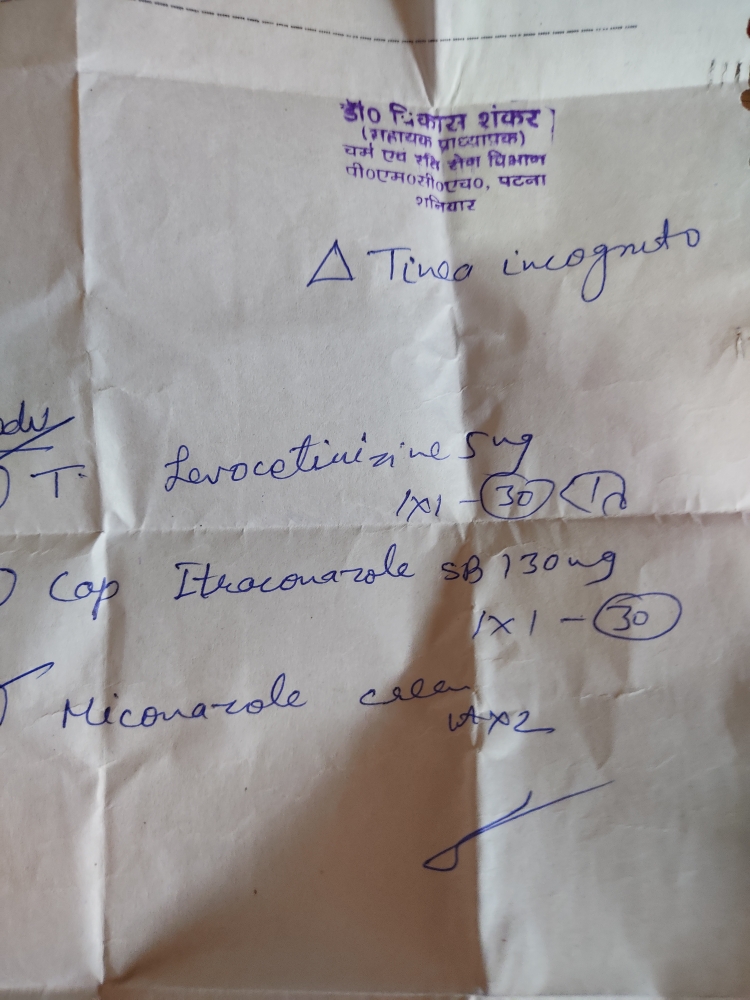 डॉ० विकास शंकर
(सहायक प्राध्यापक)
चर्म एवं रति रोग विभाग
पी०एम०सी०एच०, पटना
शनिवार
Δ Tinea incognito
T. Levocetirizine 5 mg
1x1 - 30
Cap Itraconazole SB 130 mg
1x1 - 30
Miconazole cream
x2